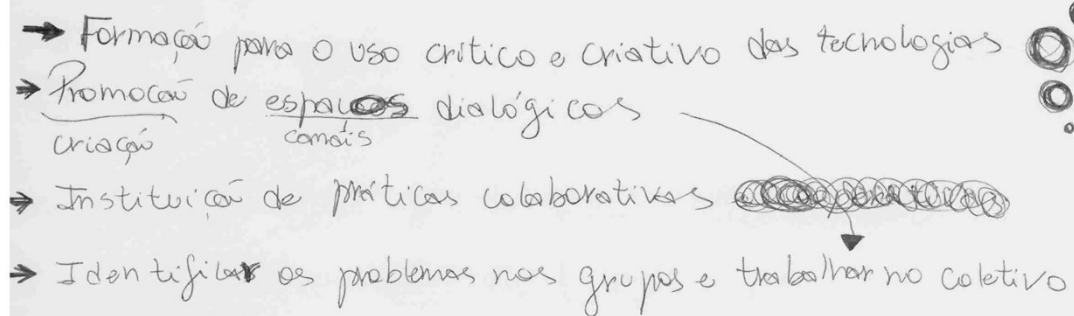 → Formação para o uso crítico e criativo das tecnologias
→ Promoção de espaços dialógicos
criação canais
→ Instituição de práticas colaborativas
→ Identificar os problemas nos grupos e trabalhar no coletivo